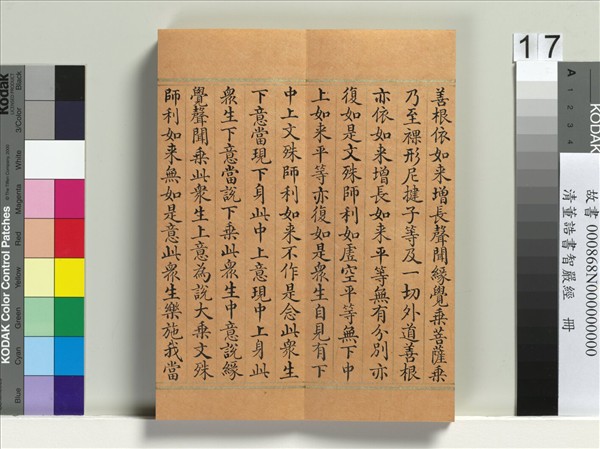 善根依如来增長聲聞緣覺乗菩薩乗
乃至裸形尼揵子等及一切外道善根
亦依如来增長如来平等無有分別亦
復如是文殊師利如虛空平等無下中
上如来平等亦復如是衆生自見有下
中上文殊師利如来不作是念此衆生
下意當現下身此中上意現中上身此
衆生下意當說下乗此衆生中意說緣
覺聲聞乗此衆生上意為說大乗文殊
師利如来無如是意此衆生樂施我當
17
故書 000868N000000000
清董誥書智嚴經 冊
KODAK Color Control Patches
Kodak
Blue
Cyan
Green
Yellow
Red
Magenta
White
3/Color
Black
A
1
2
3
4
KODAK